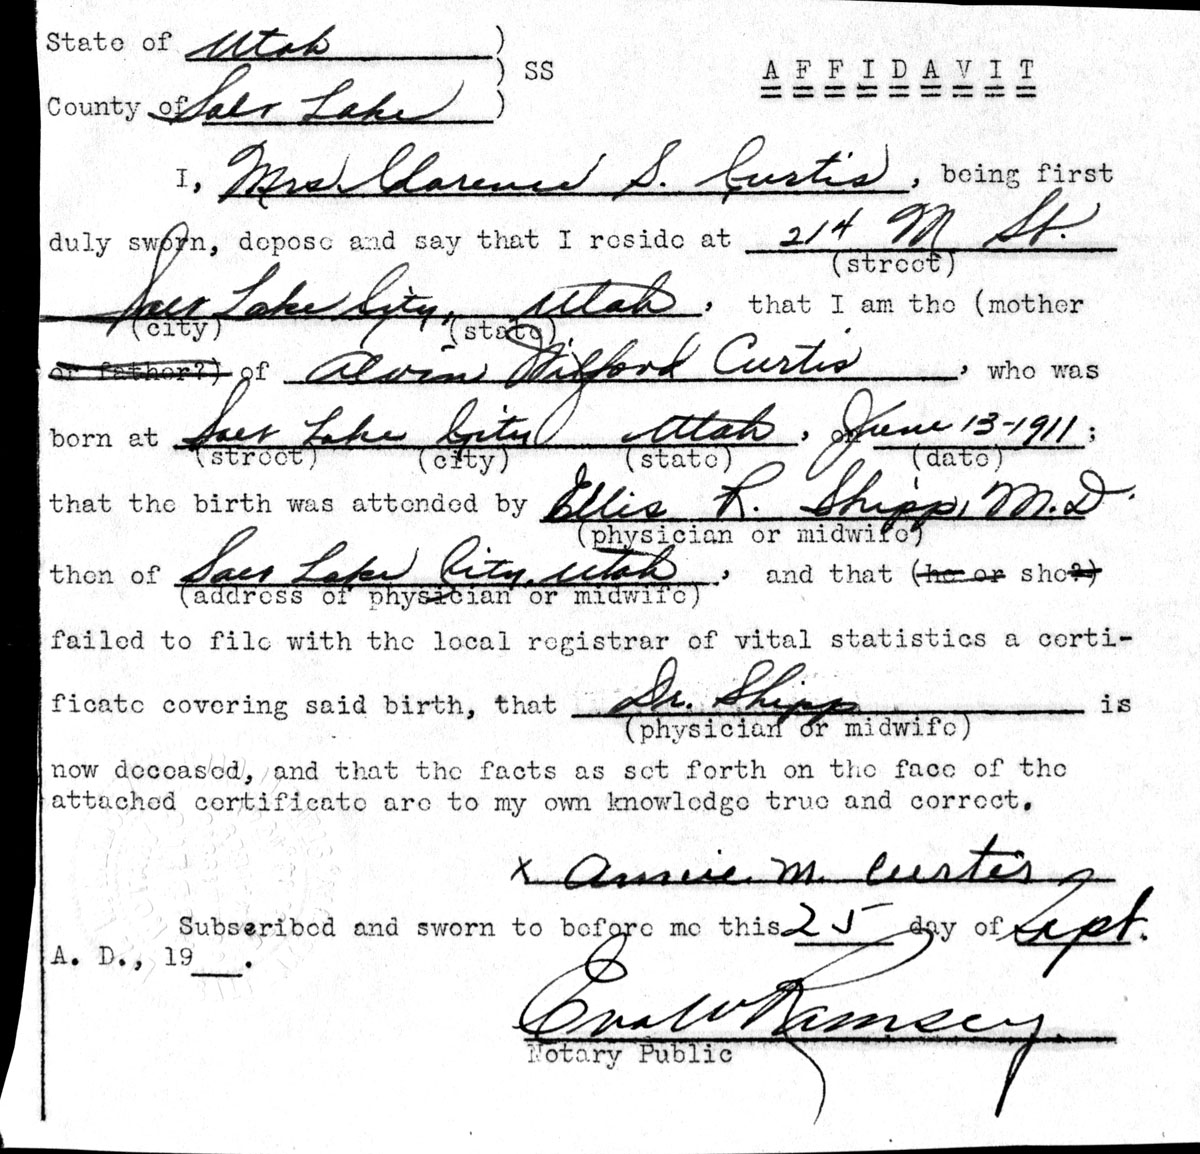 State of Utah )
) SS
AFFIDAVIT
County of Salt Lake )
I, Mrs Clarence S. Curtis, being first
duly sworn, depose and say that I reside at 214 M St.
(street)
Salt Lake City, Utah, that I am the (mother
(city) (state)
or father?) of Alvin Wilford Curtis, who was
born at Salt Lake City Utah, on June 13-1911;
(street) (city) (state) (date)
that the birth was attended by Ellis R. Shipp, M.D.
(physician or midwife)
then of Salt Lake City, Utah, and that (he or she?)
(address of physician or midwife)
failed to file with the local registrar of vital statistics a certi-
ficate covering said birth, that Dr. Shipp is
(physician or midwife)
now deceased, and that the facts as set forth on the face of the
attached certificate are to my own knowledge true and correct.
x Annie M. Curtis
Subscribed and sworn to before me this 25 day of Sept.
A. D., 19__.
Eva W Ramsey
Notary Public